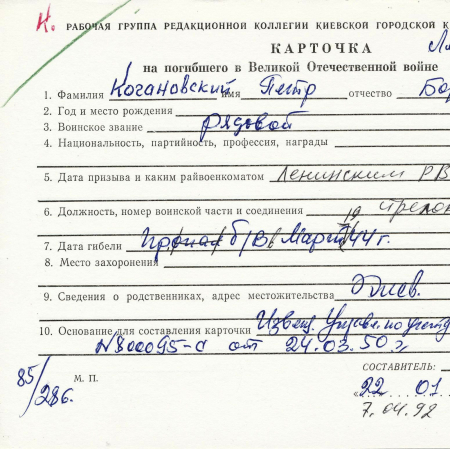 К. РАБОЧАЯ ГРУППА РЕДАКЦИОННОЙ КОЛЛЕГИИ КИЕВСКОЙ ГОРОДСКОЙ К
КАРТОЧКА
на погибшего в Великой Отечественной войне
1. Фамилия Когановский имя Петр отчество Бор
2. Год и место рождения
3. Воинское звание рядовой
4. Национальность, партийность, профессия, награды
5. Дата призыва и каким райвоенкоматом Ленинским РВ
6. Должность, номер воинской части и соединения стрелок
7. Дата гибели Пропал б/в в Март 1944 г.
8. Место захоронения
9. Сведения о родственниках, адрес местожительства
10. Основание для составления карточки Извещ. Управл. по учету
N 800095-с от 24.03.50 г.
СОСТАВИТЕЛЬ:
85/286.
М. П.
«22 01
7.04.92